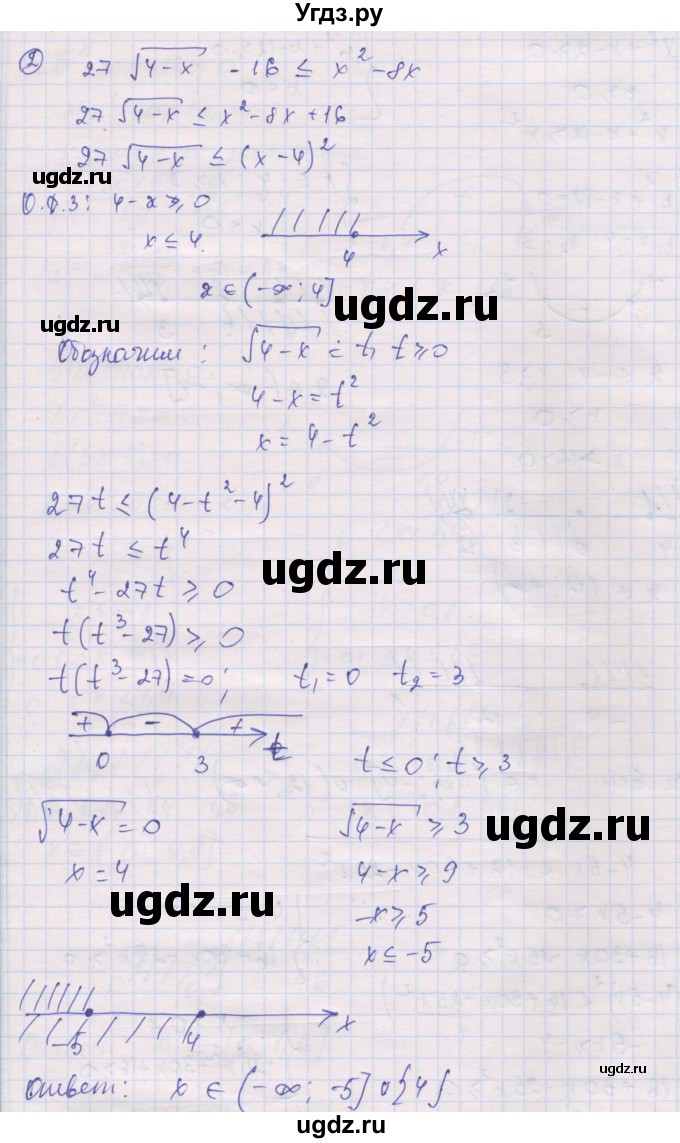 Угдз.ру
② 27 √(4-x) - 16 ≤ x² - 8x
27 √(4-x) ≤ x² - 8x + 16
27 √(4-x) ≤ (x-4)²
ugdz.ru
О.Д.З: 4-x ≥ 0
x ≤ 4.
4 x
x ∈ (-∞; 4]
ugdz.ru
ugdz.ru
Обозначим : √(4-x) = t, t ≥ 0
4-x = t²
x = 4-t²
27t ≤ (4-t²-4)²
27t ≤ t⁴
ugdz.ru
t⁴ - 27t ≥ 0
t(t³-27) ≥ 0
t(t³-27) = 0; t₁=0 t₂=3
+ - + t
0 3
t ≤ 0; t ≥ 3
√(4-x) = 0 √(4-x) ≥ 3
ugdz.ru
x = 4 4-x ≥ 9
ugdz.ru
-x ≥ 5
x ≤ -5
-5 4 x
Ответ: x ∈ (-∞; -5] ∪ {4}
ugdz.ru